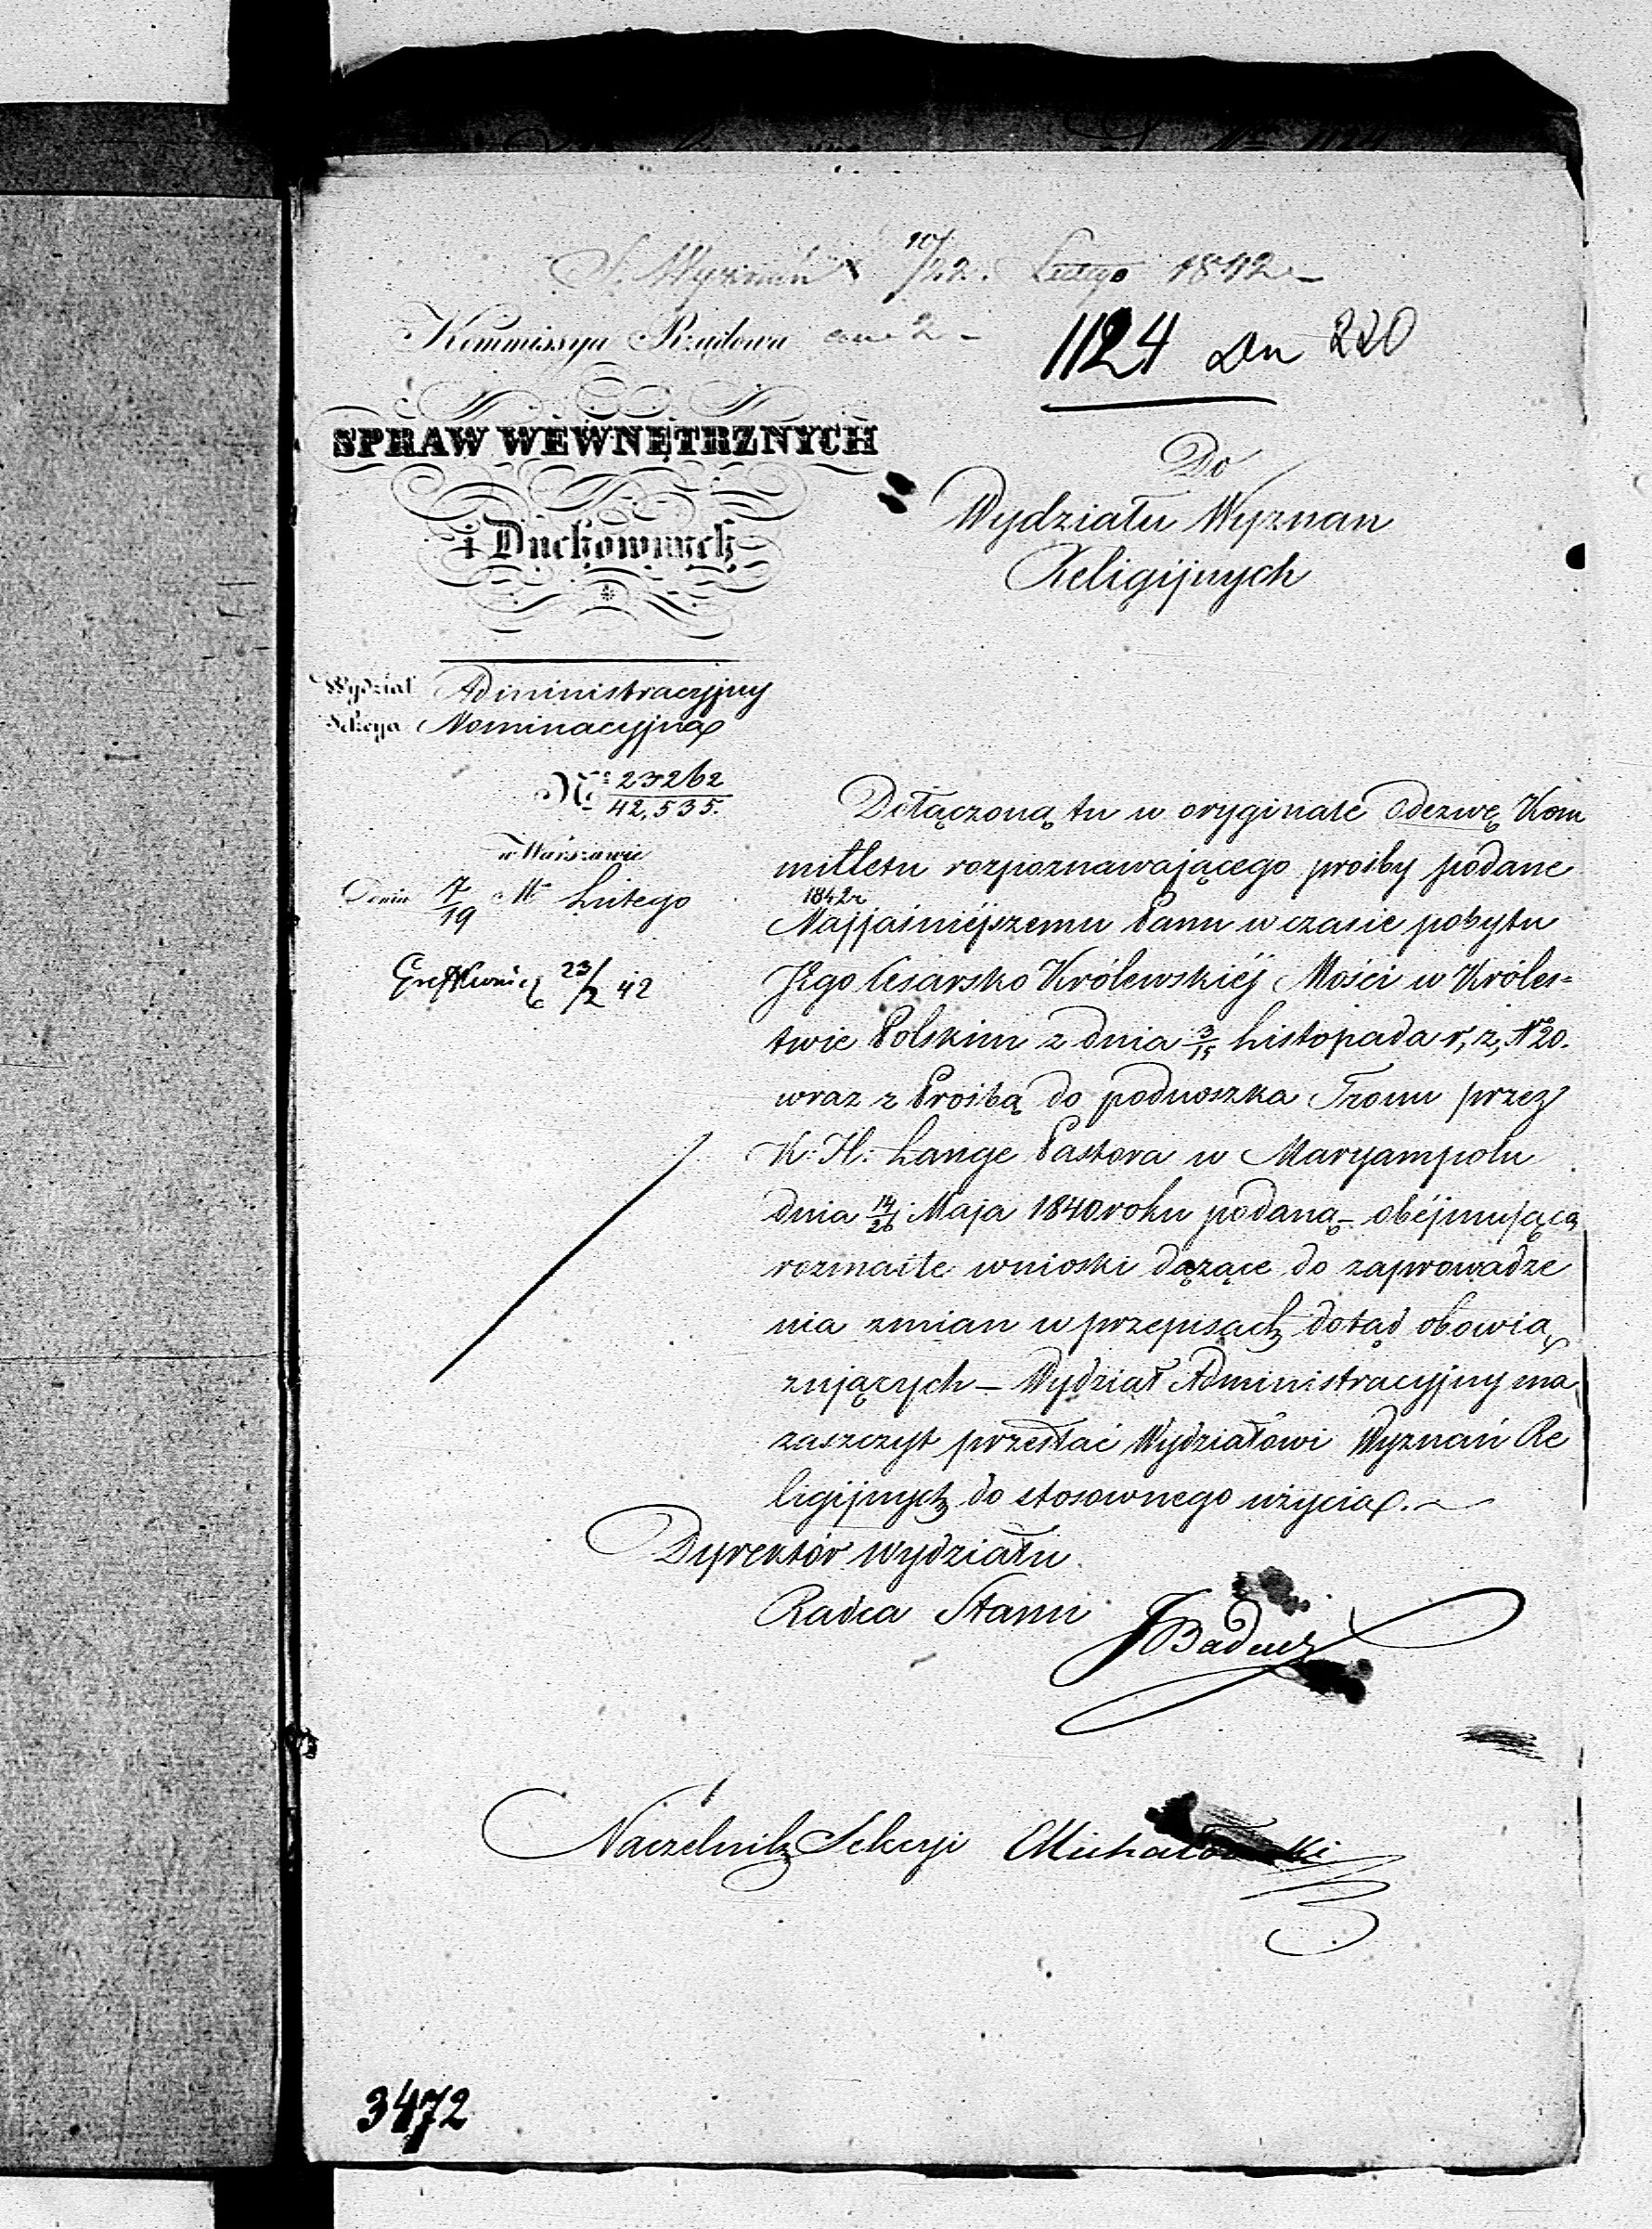 10/22. Lutego 1842
Kommissya Rządowa
1124 220
SPRAW WEWNĘTRZNYCH
i Duchownych
Do
Wydziału Wyznan
Religijnych
Wydział Administracyjny
Sekcya Nominacyjna
No 23262
42,535.
w Warszawie
Dnia 7/19 Mca Lutego
1842 r
23/2 42
Dołączoną tu w oryginale Odezwę Kom
mittetu rozpoznawającego prośby podane
Najjaśniéjszemu Panu w czasie pobytu
Jego Cesarsko Królewskiéj Mości w Króles=
twie Polskim z dnia 3/15 Listopada r, z, No 20.
wraz z Prośbą do podnoszka Tronu przez
K: H: Lange Pastora w Maryampolu
dnia 14/26 Maja 1840 roku podaną – obéjmującą
rozmaite wnioski dążące do zaprowadze
nia zmian w przepisach dotąd obowią
zujących – Wydział Administracyjny ma
zaszczyt przesłać Wydziałowi Wyznań Re
ligijnych do stosownego użycia. –
Dyrektór Wydziału
Radca Stanu
Naczelnik Sekcyi Michałowski
3472